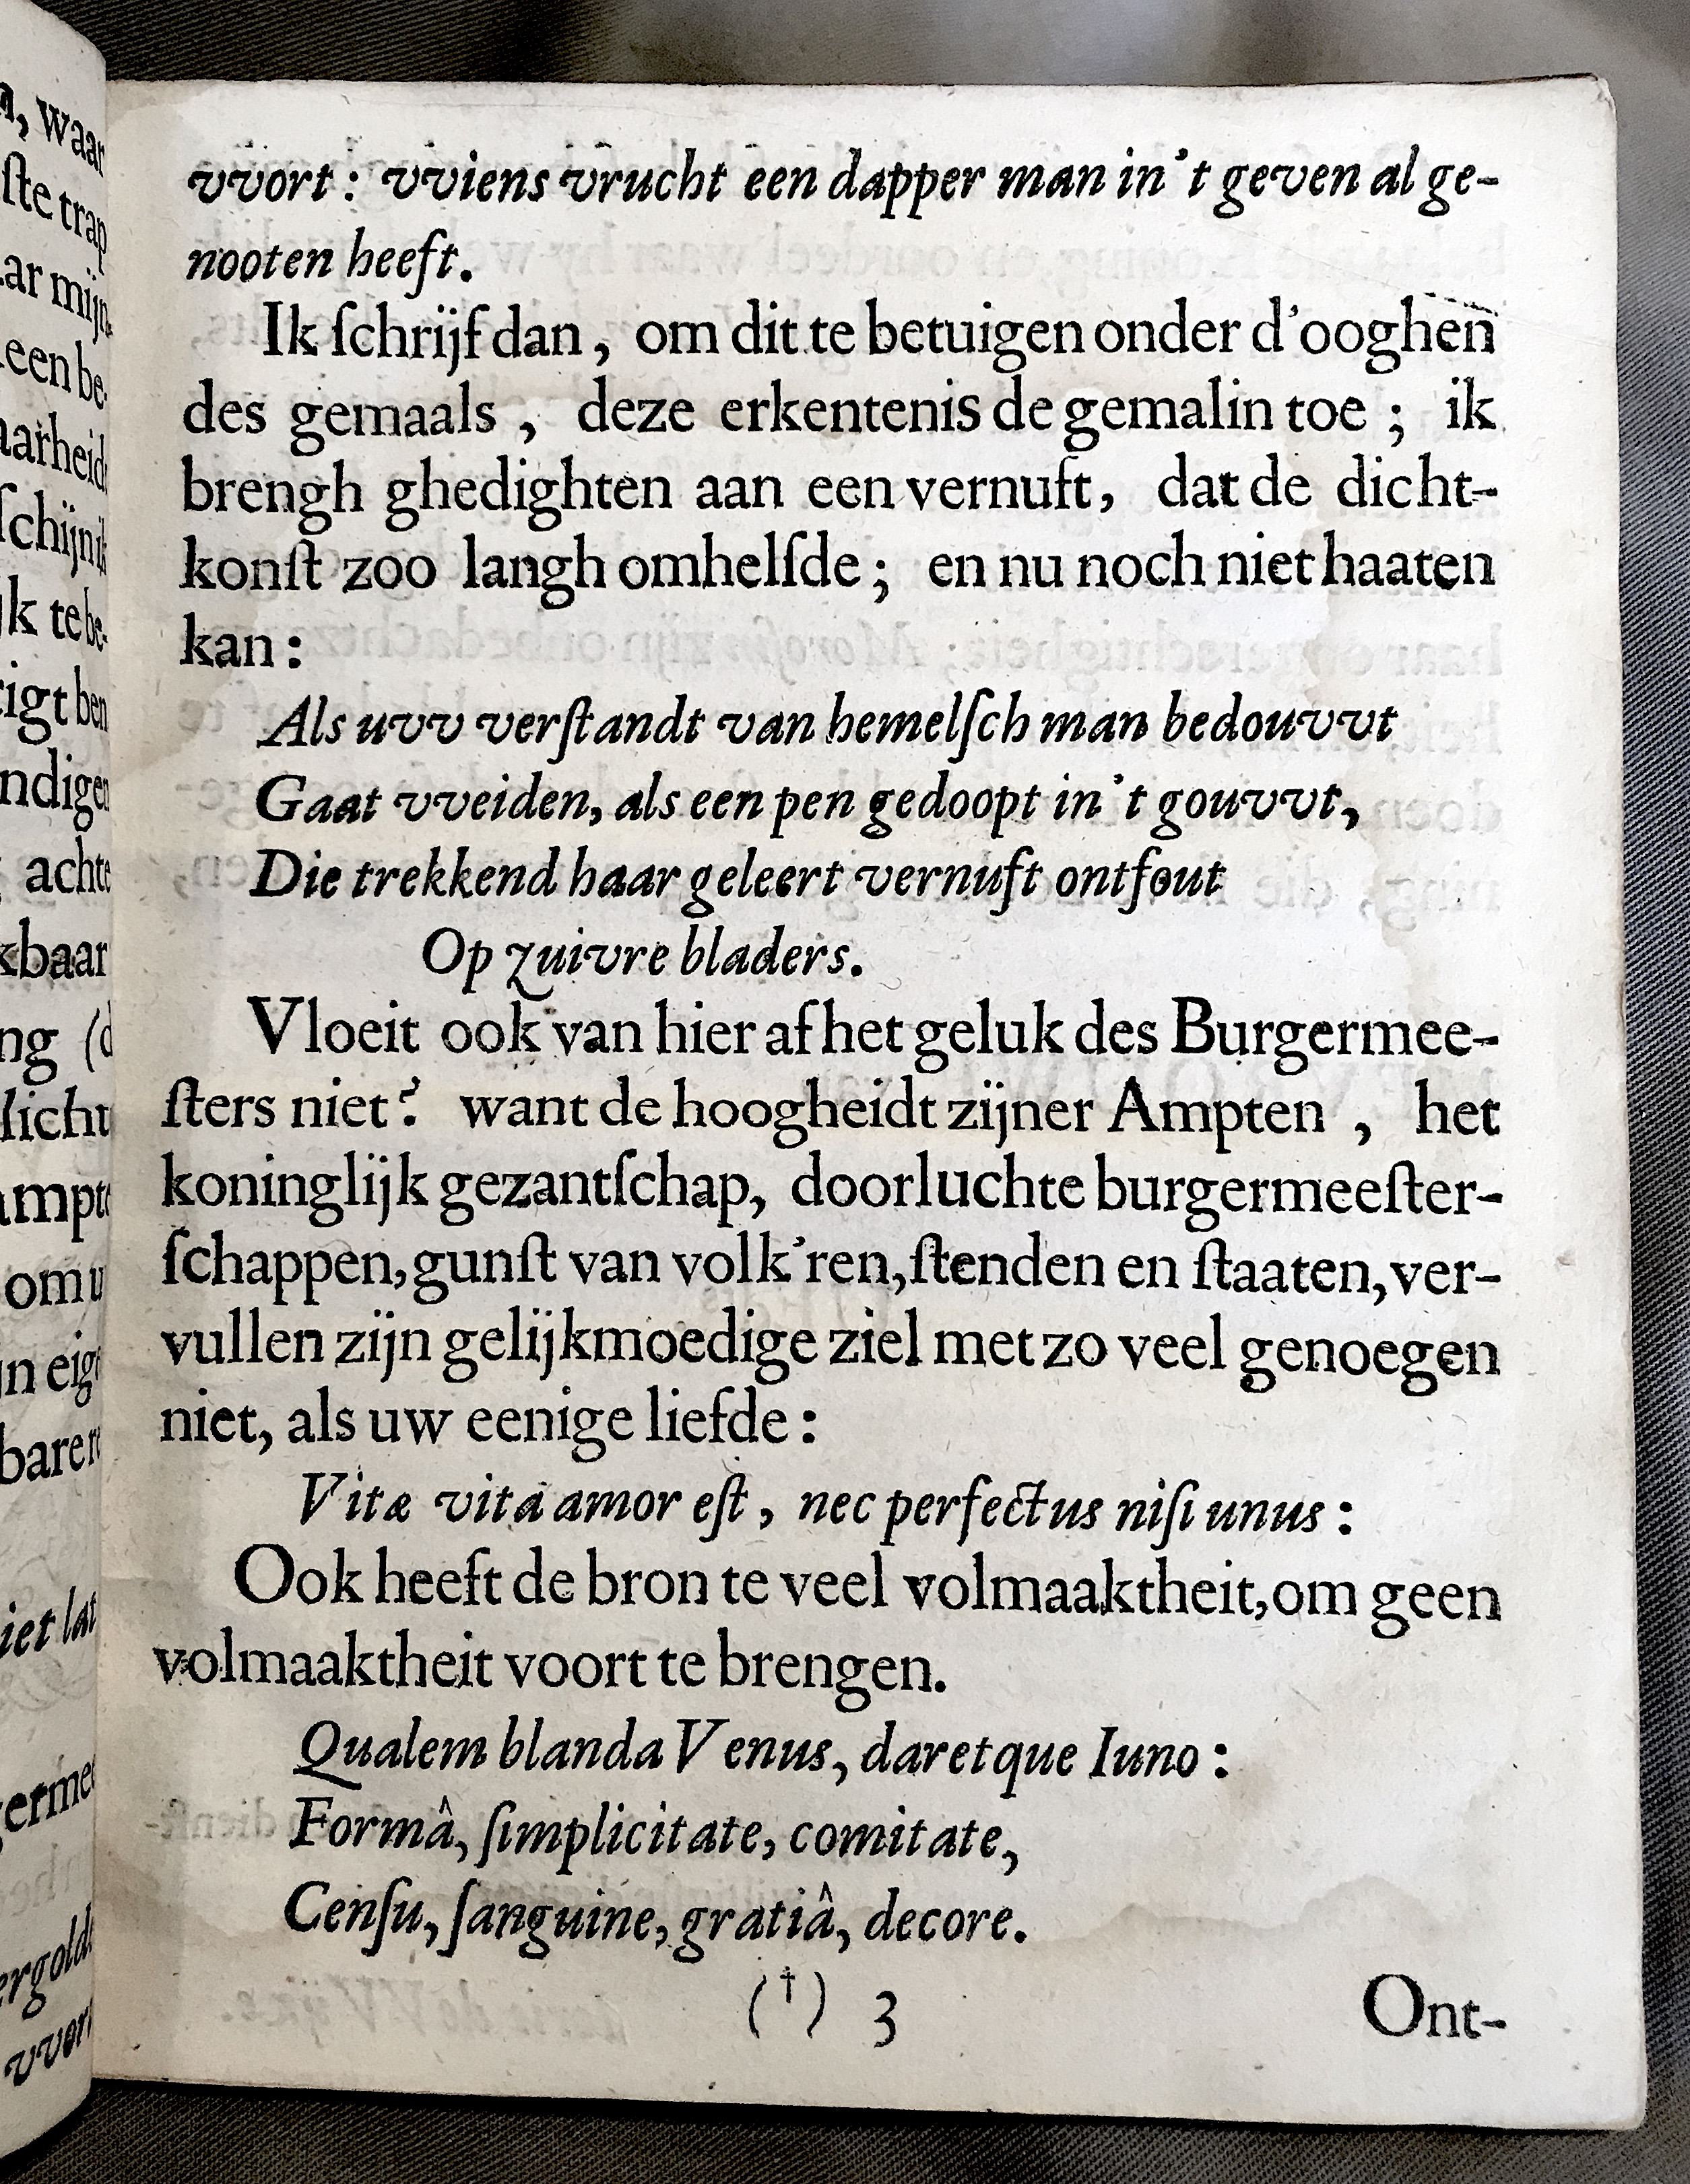 vvort: vviens vrucht een dapper man in't geven al ge-
nooten heeft.
Ik ſchrijf dan, om dit te betuigen onder d'ooghen
des gemaals, deze erkentenis de gemalin toe; ik
brengh ghedighten aan een vernuft, dat de dicht-
konſt zoo langh omhelſde; en nu noch niet haaten
kan:
Als uvv verſtandt van hemelſch man bedouvvt
Gaat vveiden, als een pen gedoopt in't gouvvt,
Die trekkend haar geleert vernuft ontfout
Op zuivre bladers.
Vloeit ook van hier af het geluk des Burgermee-
ſters niet? want de hoogheidt zijner Ampten, het
koninglijk gezantſchap, doorluchte burgermeeſter-
ſchappen, gunſt van volk'ren, ſtenden en ſtaaten, ver-
vullen zijn gelijkmoedige ziel met zo veel genoegen
niet, als uw eenige liefde:
Vitæ vita amor eſt, nec perfectus niſi unus:
Ook heeft de bron te veel volmaaktheit, om geen
volmaaktheit voort te brengen.
Qualem blanda Venus, daretque Iuno:
Formâ, ſimplicitate, comitate,
Cenſu, ſanguine, gratiâ, decore.
(†) 3
Ont-
waar
ſte trap
ar mijn
een be-
aarheid
ſchijn
k te be-
igt ben
ndigen
achte
kbaar
ng (d
licht
ampt
om u
n eig
bare
iet lat
erme
ergold
vvor